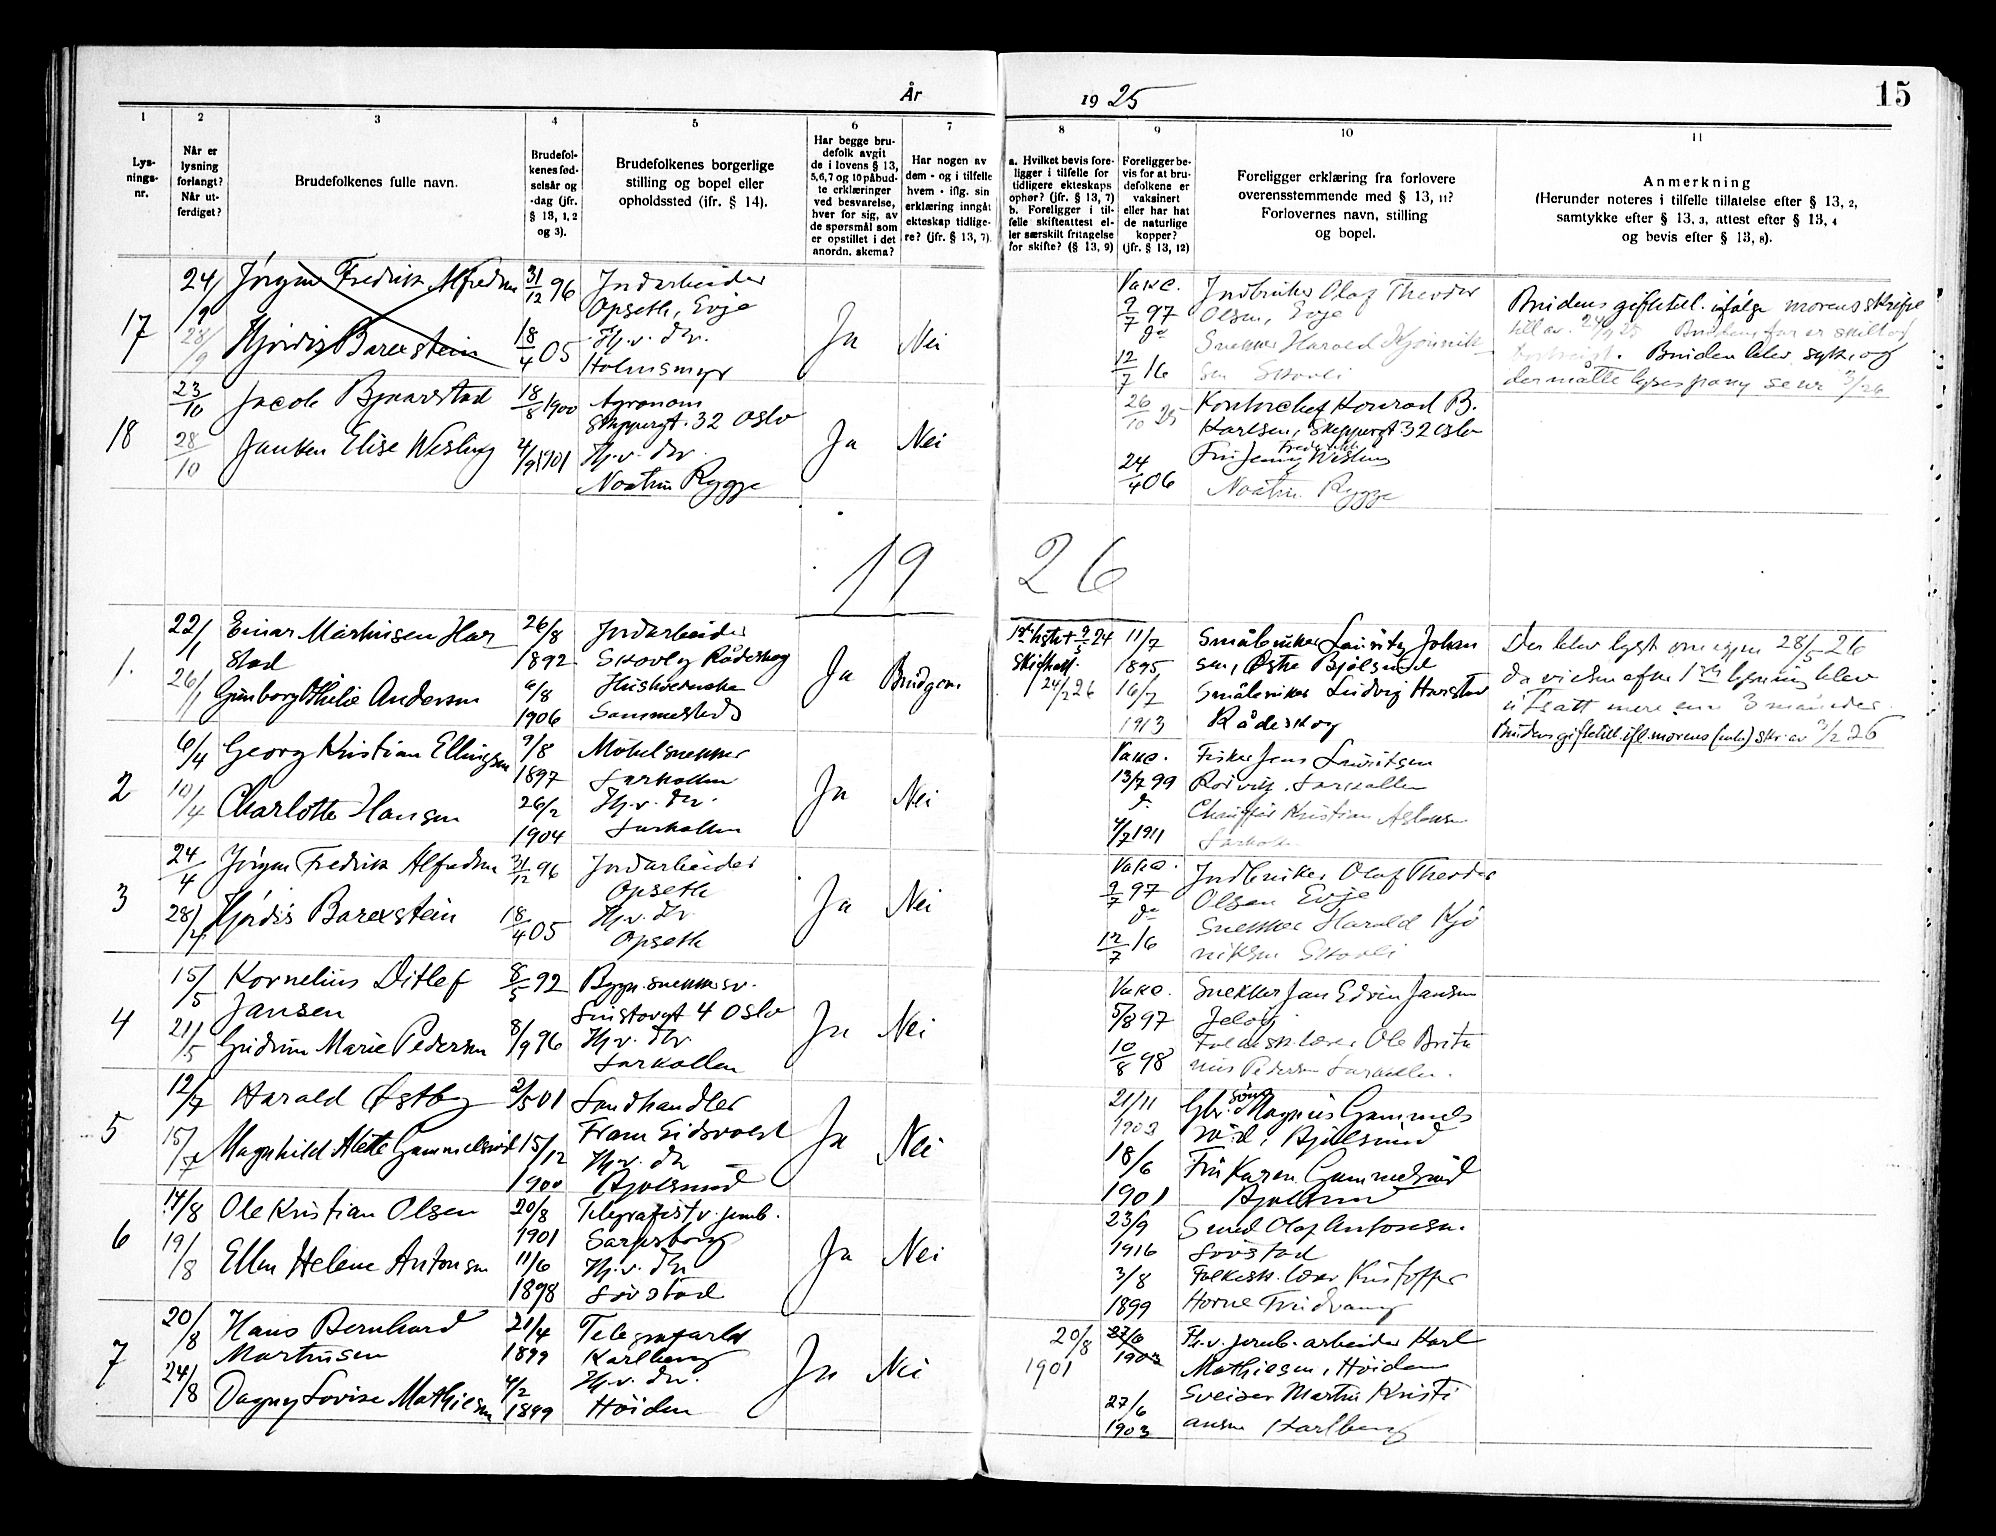 År 1925
15
1
2
3
4
5
6
7
8
9
10
11
Lys-
nings-
nr.
Når er
lysning
forlangt?
Når ut-
ferdiget?
Brudefolkenes fulle navn.
Brudefol-
kenes fød-
selsår og
-dag (jfr.
§ 13, 1, 2
og 3).
Brudefolkenes borgerlige
stilling og bopel eller
opholdssted (ifr. § 14).
Har begge bru-
defolk avgit
de i lovens § 13,
5,6,7 og 10 påbud-
te erklæringer
ved besvarelse,
hver for sig, av
de spørsmål som
er opstillet i det
anordn. skema?
Har nogen av
dem - og i tilfelle
hvem - iflg. sin
erklæring inngåt
ekteskap tidlige-
re? (jfr. § 13, 7).
a. Hvilket bevis fore-
ligger i tilfelle for
tidligere ekteskaps
ophør? (jfr. § 13, 7)
b. Foreligger i til-
felle skifteattest el-
ler særskilt fritagelse
for skifte? (§ 13, 9)
Foreligger be-
vis for at bru-
defolkene er
vaksinert
eller har hat
de naturlige
kopper?
(jfr. § 13, 12)
Foreligger erklæring fra forlovere
overensstemmende med § 13, 11?
Forlovernes navn, stilling
og bopel.
Anmerkning
(Herunder noteres i tilfelle tillatelse efter § 13, 2,
samtykke efter § 13, 3, attest efter § 13, 4
og bevis efter § 13, 8).
17
24/9
28/9
Jørgen Fredrik Alfredsen
Hjördis Barexstein
31/12 96
18/4 05
Jordarbeider
Opseth, Evje
Hj.v. dtr.
Holmsmyr
Ja
Nei
Vakc.
9/7 97
do
12/7 16
Jordbruker Olaf Theodor
Olsen, Evje
Snekker Harald Kjönnik-
sen Skovli
Brudens giftetill. ifølge morens skriftl.
till av 24/9 25
Bruden blev syk og
der måtte lyses påny se nr 3/26
18
23/10
28/10
Jacob Bjaarstad
Janken Elise Wesling
18/8 1900
4/9 1901
Agronom
Skippergt. 32 Oslo
Hj.v. dtr.
Noatun Rygge
Ja
Nei
26/10 25
24/4 06
Kontorchef Konrad B.
Karlsen, Skippergt 32 Oslo
Fru Jenny Wesling
Noatun Rygge
19 26
1.
22/1
26/1
Einar Martinsen Har
stad
Gunborg Othilie Andersen
26/8
1892
6/8
1906
Jordarbeider
Skovly Rådeskog
Hushjelp
Sammesteds
Ja
Brudgom
24/2 26
11/7
1895
16/7
1913
Småbruker Lauritz Johan
sen, Østre Bjölsund
Småbruker Ludvig Harstad
Rådeskog
Der blev lyst om igjen 28/5 26
da vielsen efter 1ste lysning blev
utsatt mere enn 3 måneder.
Brudens giftetill. ifl. morens (enke) skr. av 3/2 26
2
6/4
10/4
Georg Kristian Ellingsen
Charlotte Hansen
9/8
1897
26/2
1904
Möbelsnekker
Larkollen
Hj.v. dtr.
Larkollen
Ja
Nei
Vakc.
13/7 99
do
4/7 1911
Fisker Jens Lauritsen
Rörvik. Larkollen
Chauffør Kristian Aslaksen
Larkollen
3
24/4
28/4
Jörgen Fredrik Alfredsen
Hjördis Barexstein
31/12 96
18/4 05
Jordarbeider
Opseth
Hj.v. dtr
Opseth
Ja
Nei
Vakc.
9/7 97
do
12/7 16
Jordbruker Olaf Theodor
Olsen Evje
Snekker Harald Kjö
niksen Skovli
4
15/5
21/5
Kornelius Ditlef
Jansen
Gudrun Marie Pedersen
8/5 92
8/9 96
Bygn.snekkersv.
Linstowgt 4 Oslo
Hj.v. dtr
Larkollen
Ja
Nei
Vakc.
5/8 97
10/8 98
Snekker Jan Edvin Jansen
Jelöy
Folkesk.lærer Ole Brita
nius Pedersen Larkollen.
5
12/7
15/7
Harald Østby
Magnhild Alette Gammelsrød
2/5 01
15/12
1900
Landhandler
Fram Eidsvold
Hj.v. dtr
Bjölsund
Ja
Nei
21/11
1903
18/6
1901
Gbr.sönn Magnus Gammels
röd, Bjölsund
Fru Karen Gammelsröd
Bjölsund
6
14/8
19/8
Ole Kristian Olsen
Ellen Helene Antonsen
20/8
1901
11/6
1898
Telegrafist v. jernb.
Sarpsborg
Hj.v. dtr
Lövstad
Ja
Nei
23/9
1916
3/8
1899
Smed Olaf Antonsen.
Lövstad
Folkesk. lærer Kristoffer
Horne Fridvang
7
20/8
24/8
Hans Bernhard
Martinsen
Dagny Lovise Mathiesen
21/4
1899
4/2
1899
Telegrafarb
Karlberg
Hj.v. dtr.
Höiden
Ja
Nei
20/8
1901
27/6
1903
27/6
1903
Fh.v. jernb.arbeider Karl
Mathiesen, Höiden
Sveiser Martin Kristi
ansen Karlberg